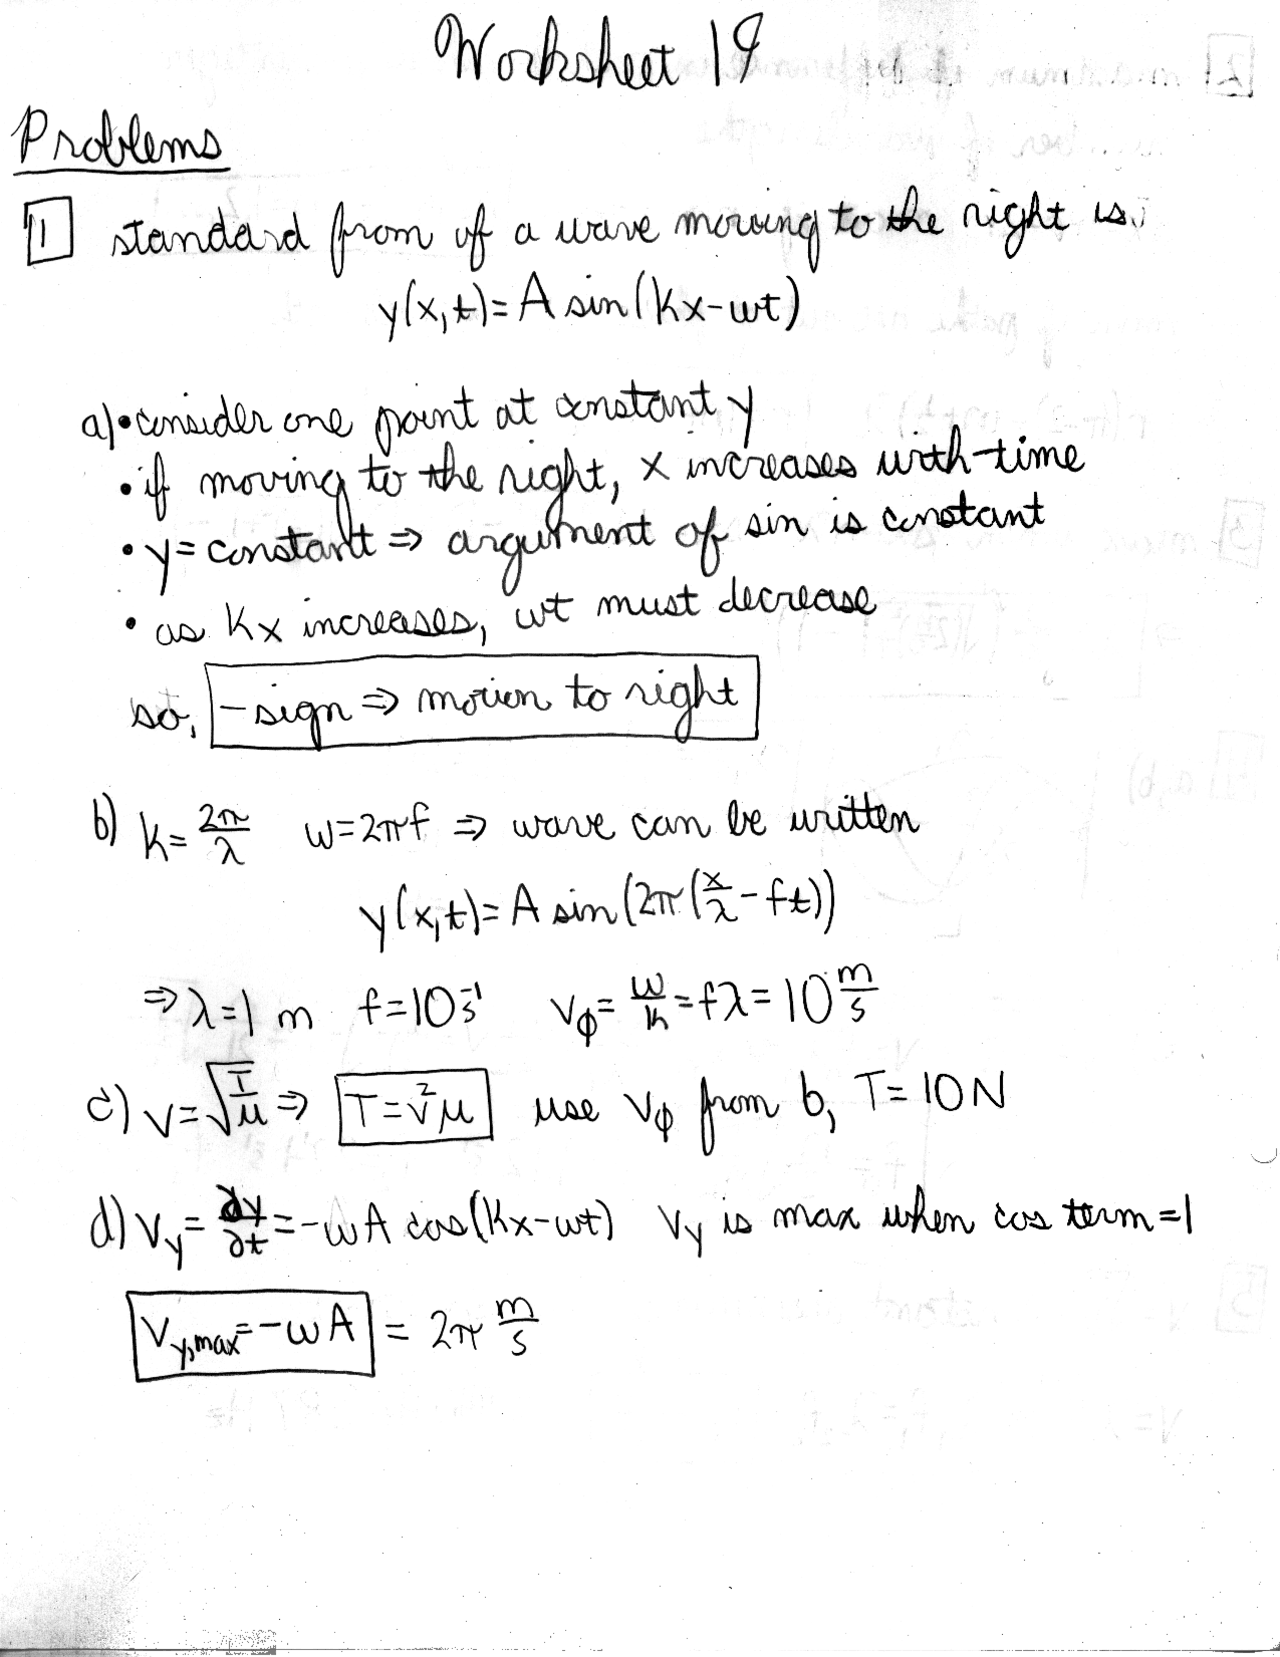 Worksheet 19
Problems
1 standard from of a wave moving to the right is
y(x,t)=A sin(kx-ωt)
a)•consider one point at constant y
•if moving to the right, x increases with time
•y=constant⇒ argument of sin is constant
•as kx increases, ωt must decrease
so, -sign⇒ motion to right
b) k=2π/λ ω=2πf ⇒ wave can be written
y(x,t)=A sin(2π(x/λ-ft))
⇒λ=1 m f=10 s⁻¹ vφ=ω/k=fλ=10 m/s
c) v=√(T/μ)⇒ T=v²μ use vφ from b, T=10N
d) Vy=∂y/∂t=-ωA cos(kx-ωt) Vy is max when cos term=1
Vy,max=-ωA = 2π m/s